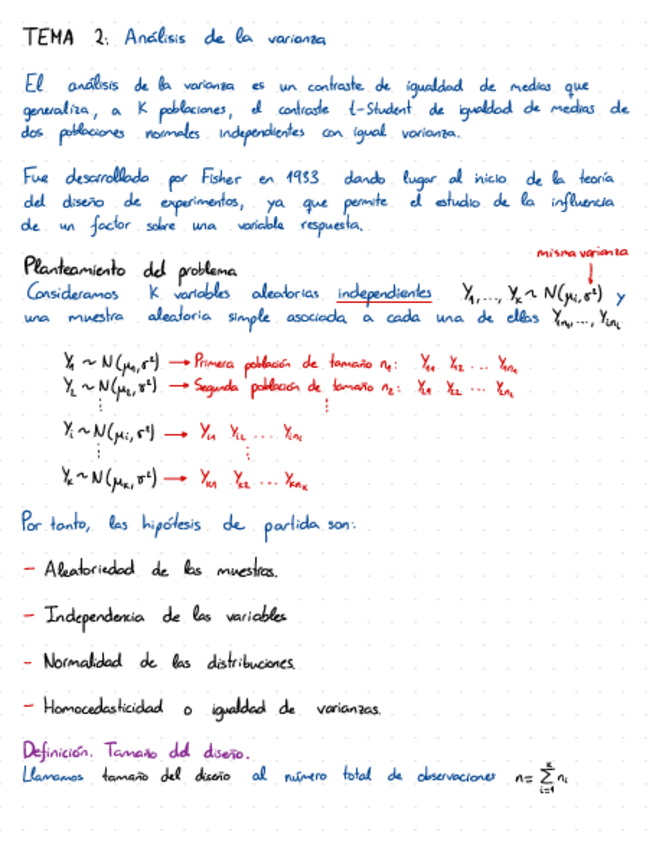 TEMA 2: Análisis de la varianza
El análisis de la varianza es un contraste de igualdad de medias que
generaliza, a K poblaciones, el contraste t-Student de igualdad de medias de
dos poblaciones normales independientes con igual varianza.
Fue desarrollado por Fisher en 1933 dando lugar al inicio de la teoría
del diseño de experimentos, ya que permite el estudio de la influencia
de un factor sobre una variable respuesta.
misma varianza
Planteamiento del problema
Consideramos K variables aleatorias independientes Y₁,..., Yₖ ~ N(μᵢ,σ²) y
una muestra aleatoria simple asociada a cada una de ellas Yᵢ₁,..., Yᵢₙᵢ
Y₁ ~ N(μ₁,σ²) → Primera población de tamaño n₁: Y₁₁ Y₁₂ ... Y₁ₙ₁
Y₂ ~ N(μ₂,σ²) → Segunda población de tamaño n₂: Y₂₁ Y₂₂ ... Y₂ₙ₂
⋮ ⋮
Yᵢ ~ N(μᵢ,σ²) → Yᵢ₁ Yᵢ₂ .... Yᵢₙᵢ
⋮ ⋮
Yₖ ~ N(μₖ,σ²) → Yₖ₁ Yₖ₂ ... Yₖₙₖ
Por tanto, las hipótesis de partida son:
- Aleatoriedad de las muestras.
- Independencia de las variables
- Normalidad de las distribuciones.
- Homocedasticidad o igualdad de varianzas.
Definición. Tamaño del diseño.
Llamamos tamaño del diseño al número total de observaciones n = ∑ᵢ₌₁ᴷ nᵢ